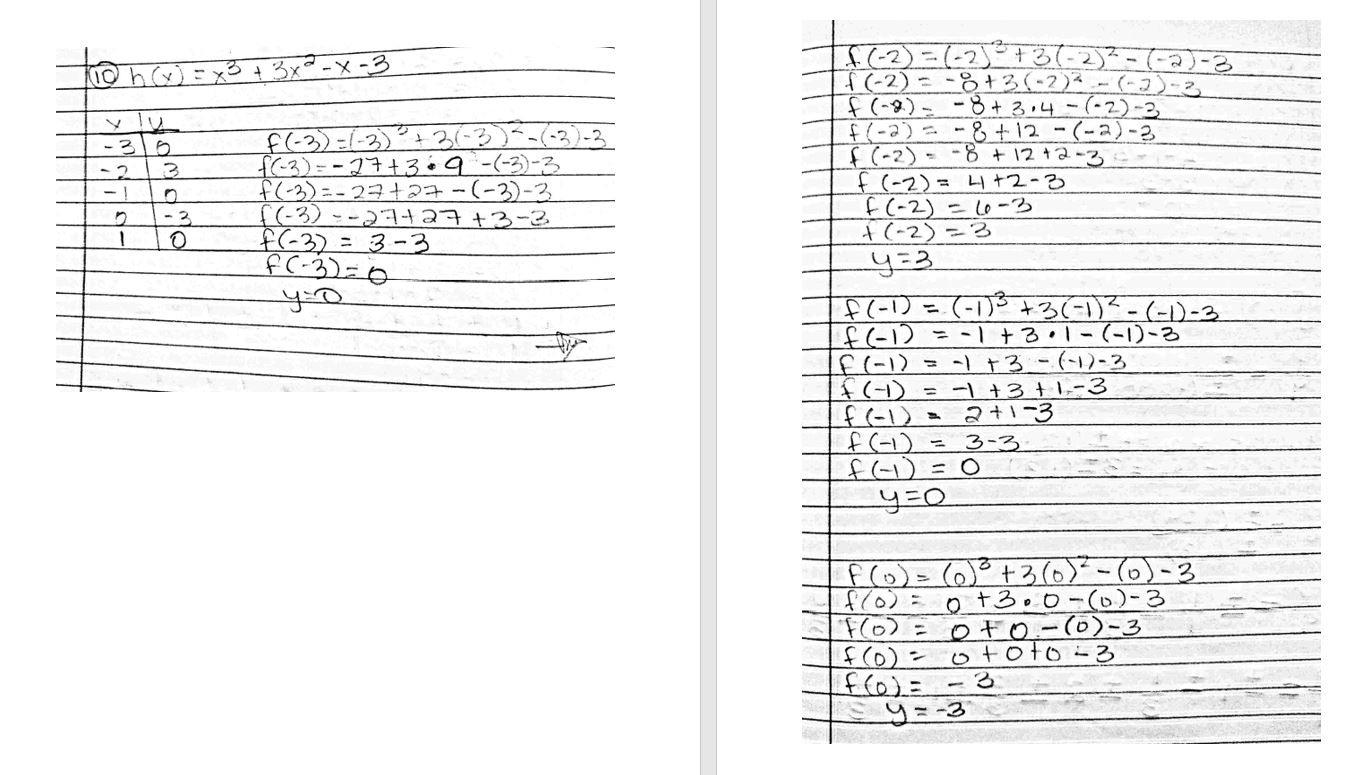 ⑩ h(x) = x³ + 3x² - x - 3
x | y
-3 | 0 f(-3) = (-3)³ + 3(-3)² - (-3) - 3
-2 | 3 f(-3) = -27 + 3 • 9 - (-3) - 3
-1 | 0 f(-3) = -27 + 27 - (-3) - 3
0 | -3 f(-3) = -27 + 27 + 3 - 3
1 | 0 f(-3) = 3 - 3
f(-3) = 0
y = 0
f(-2) = (-2)³ + 3(-2)² - (-2) - 3
f(-2) = -8 + 3(-2)² - (-2) - 3
f(-2) = -8 + 3 • 4 - (-2) - 3
f(-2) = -8 + 12 - (-2) - 3
f(-2) = -8 + 12 + 2 - 3
f(-2) = 4 + 2 - 3
f(-2) = 6 - 3
f(-2) = 3
y = 3
f(-1) = (-1)³ + 3(-1)² - (-1) - 3
f(-1) = -1 + 3 • 1 - (-1) - 3
f(-1) = -1 + 3 - (-1) - 3
f(-1) = -1 + 3 + 1 - 3
f(-1) = 2 + 1 - 3
f(-1) = 3 - 3
f(-1) = 0
y = 0
f(0) = (0)³ + 3(0)² - (0) - 3
f(0) = 0 + 3 • 0 - (0) - 3
f(0) = 0 + 0 - (0) - 3
f(0) = 0 + 0 + 0 - 3
f(0) = -3
y = -3